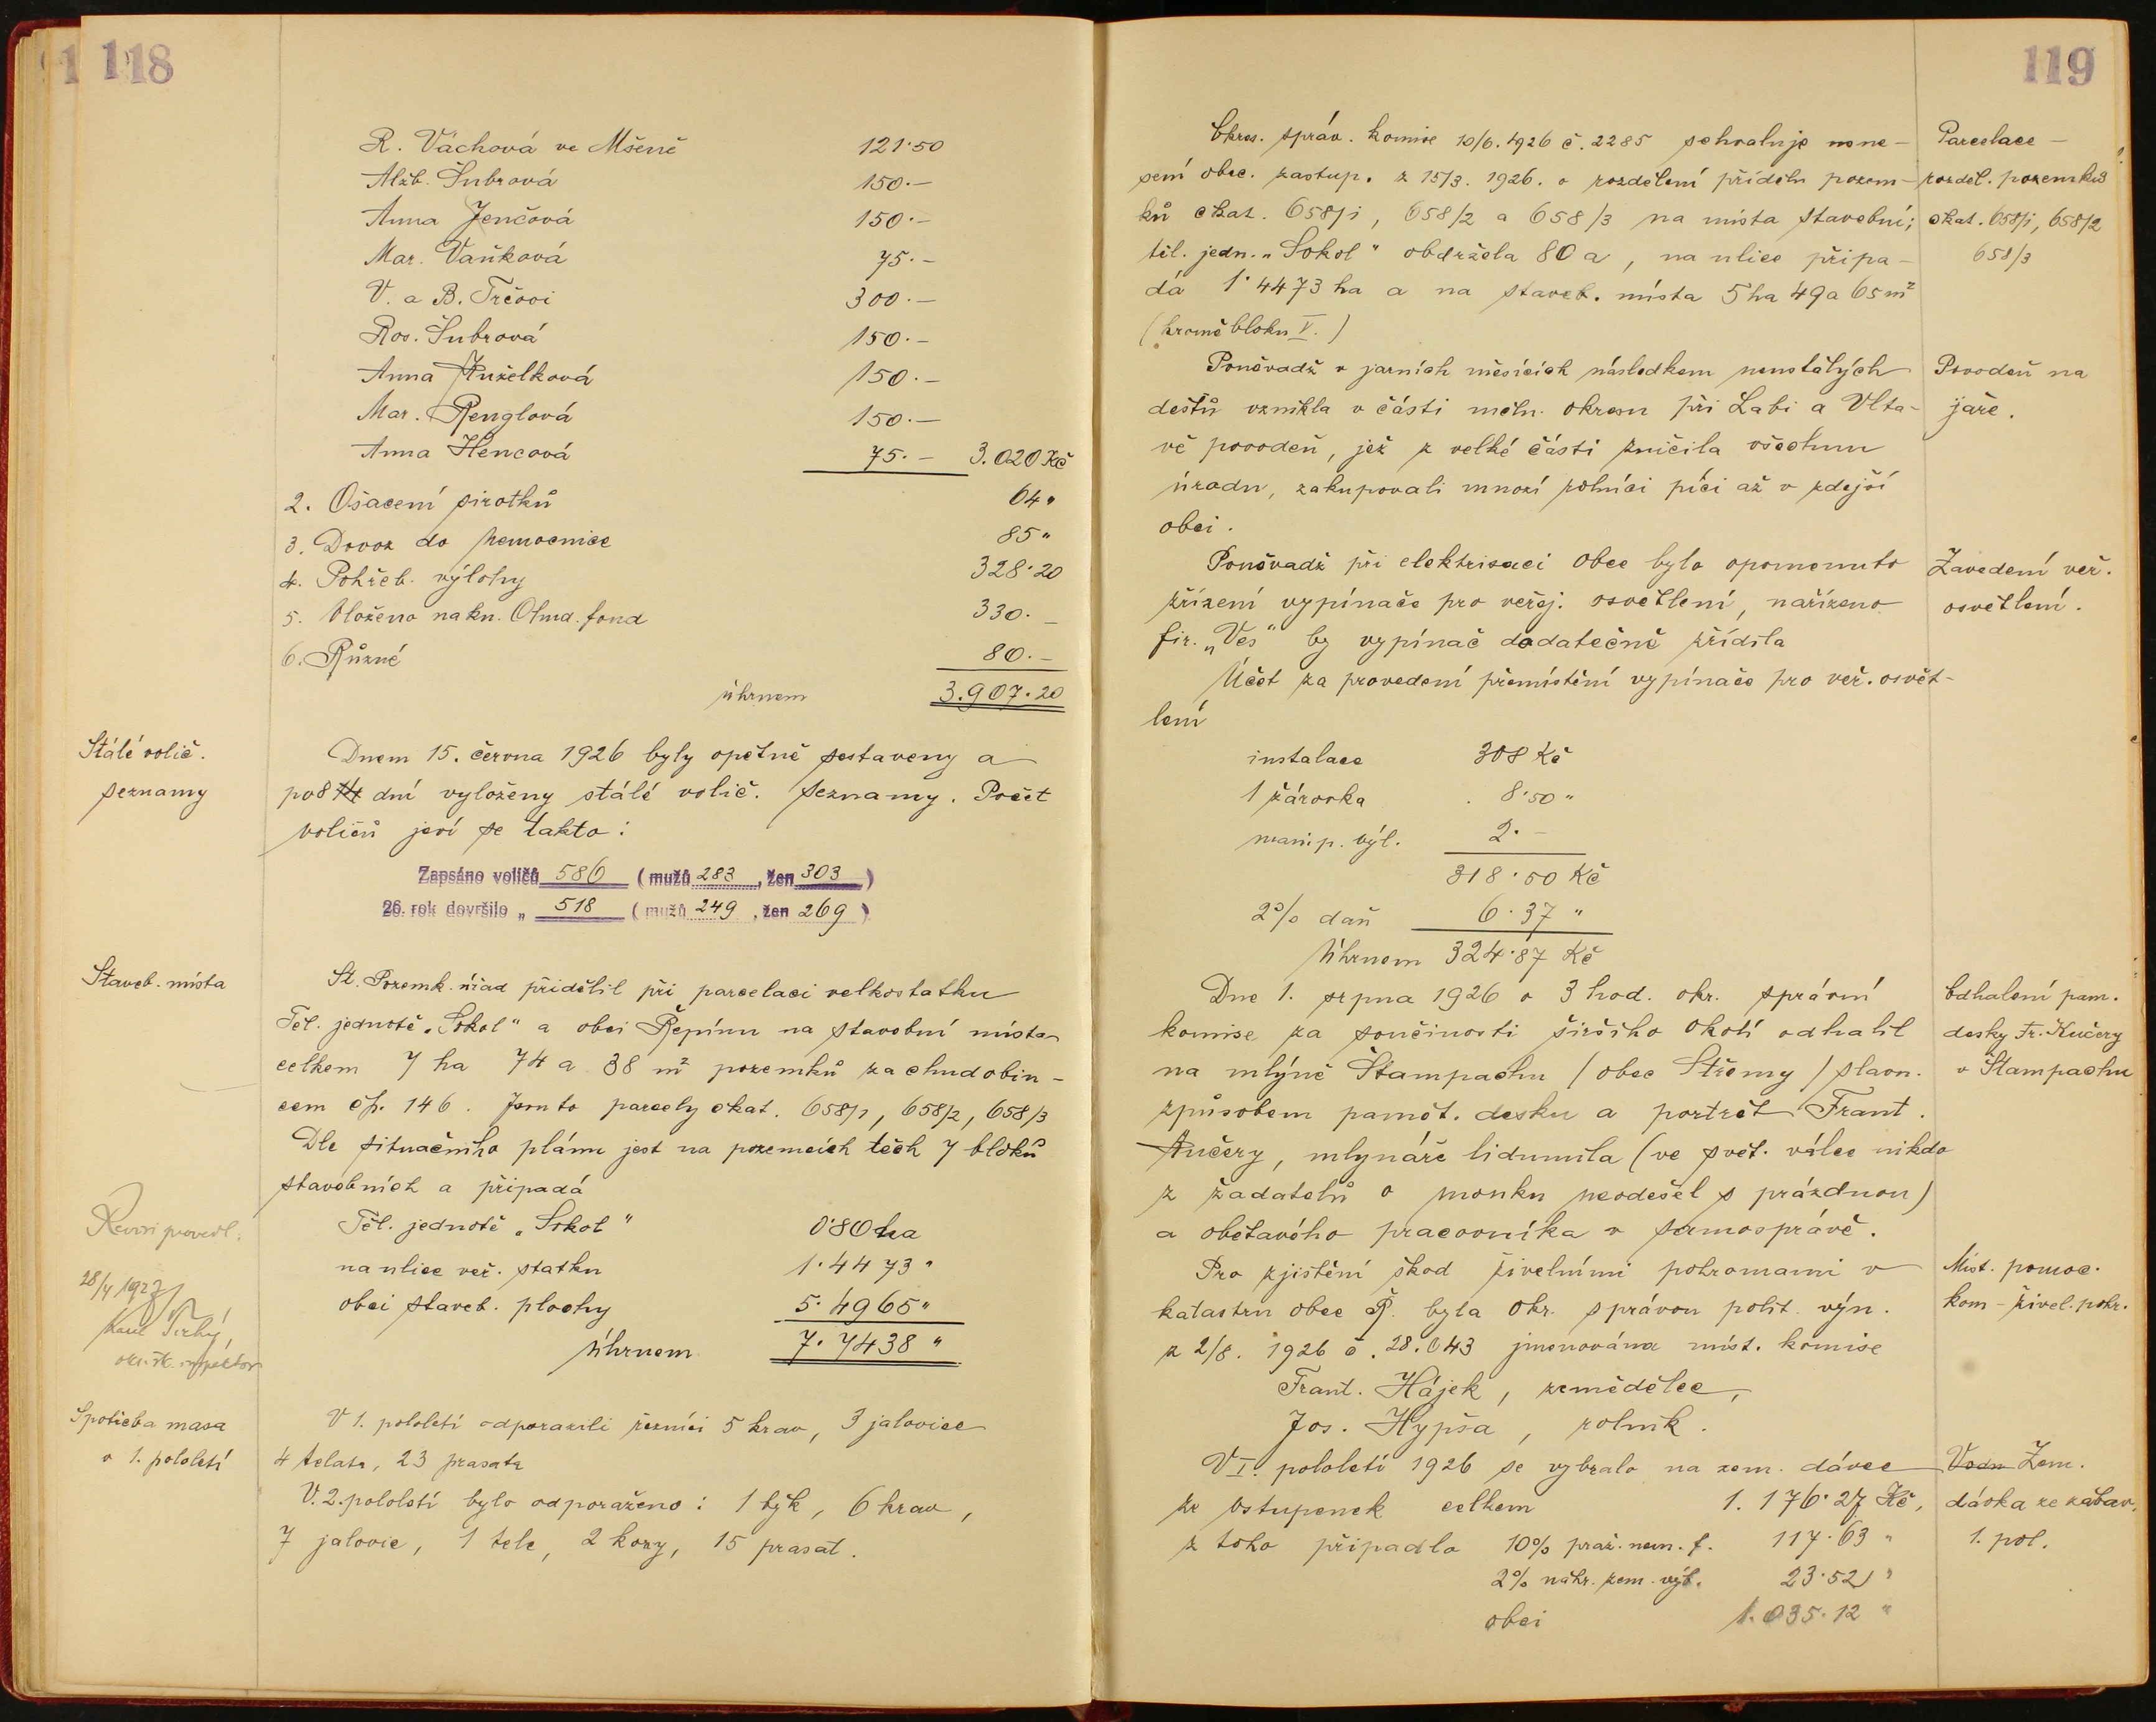 118
R. Váchová ve Mšeně 121·50
Alžb. Šubrová 150·–
Anna Jenčová 150·–
Mar. Vaňková 75·–
V. a B. Trčovi 300·–
Ros. Šubrová 150·–
Anna Kuželková 150·–
Mar. Renglová 150·–
Anna Hencová 75·– 3.020 Kč
2. Ošacení sirotků 64 "
3. Dovoz do nemocnice 85 "
4. Pohřeb. výlohy 328·20
5. Vloženo na kn. Chud. fond 330·–
6. Různé 80·–
úhrnem 3.907·20
Stálé volič.
seznamy
Dnem 15. června 1926 byly opětně sestaveny a
po 8 14 dní vyloženy stálé volič. seznamy. Počet
voličů jeví se takto:
Zapsáno voličů 586 (mužů 283, žen 303)
26. rok dovršilo „ 518 (mužů 249, žen 269)
Staveb. místa
St. Pozemk. úřad přidělil při parcelaci velkostatku
Těl. jednotě „Sokol" a obci Řepínu na stavební místa
celkem 7 ha 74 a 38 m² pozemků za chudobin-
cem čp. 146. Jsou to parcely čkat. 658/1, 658/2, 658/3
Dle situačního plánu jest na pozemcích těch 7 bloků
stavebních a připadá
Těl. jednotě „Sokol" 0·80 ha
na ulice veř. statku 1·4473 "
obci staveb. plochy 5·4965 "
Úhrnem 7·7438 "
Revisi provedl:
28/4 1927
Karel Tichý,
okr. šk. inspektor
Spotřeba masa
v 1. pololetí
V 1. pololetí odporazili řezníci 5 krav, 3 jalovice
4 telata, 23 prasata
V. 2. pololetí bylo odporaženo: 1 býk, 6 krav,
7 jalovic, 1 tele, 2 kozy, 15 prasat.
119
Okres. správ. komise 10/6. 1926 č. 2285 schvaluje usne-
sení obec. zastup. z 15/3. 1926. o rozdělení přídělu pozem-
ků čkat. 658/1, 658/2 a 658/3 na místa stavební;
těl. jedn. „Sokol" obdržela 80 a, na ulice připa-
dá 1·4473 ha a na staveb. místa 5 ha 49 a 65 m²
(kromě bloku V.)
Parcelace –
rozděl. pozemků
čkat. 658/1, 658/2
658/3
Poněvadž v jarních měsících následkem neustálých
dešťů vznikla v části měln. okresu při Labi a Vlta-
vě povodeň, jež z velké části zničila všechnu
úrodu, zakupovali mnozí rolníci píci až v zdejší
obci.
Povodeň na
jaře.
Poněvadž při elektrisaci obce bylo opomenuto
zřízení vypínače pro veřej. osvětlení, nařízeno
fir. „Ves" by vypínač dodatečně zřídila
Zavedení veř.
osvětlení.
Účet za provedení přemístění vypínače pro veř. osvět-
lení
instalace 308 Kč
1 žárovka 8·50 "
manip. výl. 2·–
318·50 Kč
2% daň 6·37 "
Úhrnem 324·87 Kč
Dne 1. srpna 1926 o 3 hod. okr. správní
komise za součinosti širšího okolí odhalil
na mlýně Štampachu /obec Střemy/ slavn.
způsobem pamět. desku a portrét Frant.
Kučery, mlynáře lidumila (ve svět. válce nikdo
z žadatelů o mouku neodešel s prázdnou)
a obětavého pracovníka v samosprávě.
Odhalení pam.
desky Fr. Kučery
v Štampachu
Pro zjištění škod živelními pohromami v
katastru obce Ř. byla okr. správou polit. výn.
z 2/8. 1926 č. 28.043 jmenována míst. komise
Frant. Hájek, zemědělec,
Jos. Hypša, rolník.
Míst. pomoc.
kom – živel. pohr.
V I. pololetí 1926 se vybralo na zem. dávce
ze vstupenek celkem 1.176·27 Kč,
z toho připadlo 10% praž. nem. f. 117·63 "
2% náhr. zem. výb. 23·52 "
obci 1.035·12 "
Vodn Zem.
dávka ze zábav.
1. pol.